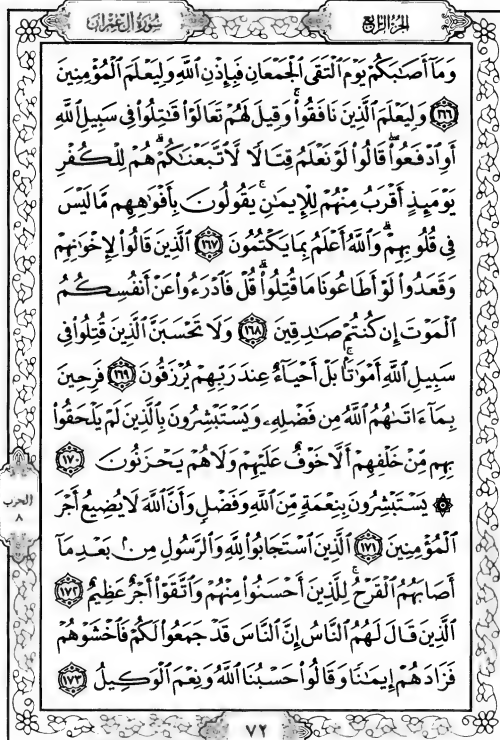 الجزء الرابع
سُورَةُ آلِ عِمْرَانَ
وَمَآ أَصَٰبَكُمْ يَوْمَ ٱلْتَقَى ٱلْجَمْعَانِ فَبِإِذْنِ ٱللَّهِ وَلِيَعْلَمَ ٱلْمُؤْمِنِينَ
١٦٦ وَلِيَعْلَمَ ٱلَّذِينَ نَافَقُوا۟ۚ وَقِيلَ لَهُمْ تَعَالَوْا۟ قَٰتِلُوا۟ فِى سَبِيلِ ٱللَّهِ
أَوِ ٱدْفَعُوا۟ۖ قَالُوا۟ لَوْ نَعْلَمُ قِتَالًا لَّٱتَّبَعْنَٰكُمْۗ هُمْ لِلْكُفْرِ
يَوْمَئِذٍ أَقْرَبُ مِنْهُمْ لِلْإِيمَٰنِۚ يَقُولُونَ بِأَفْوَٰهِهِم مَّا لَيْسَ
فِى قُلُوبِهِمْۗ وَٱللَّهُ أَعْلَمُ بِمَا يَكْتُمُونَ ١٦٧ ٱلَّذِينَ قَالُوا۟ لِإِخْوَٰنِهِمْ
وَقَعَدُوا۟ لَوْ أَطَاعُونَا مَا قُتِلُوا۟ۗ قُلْ فَٱدْرَءُوا۟ عَنْ أَنفُسِكُمُ
ٱلْمَوْتَ إِن كُنتُمْ صَٰدِقِينَ ١٦٨ وَلَا تَحْسَبَنَّ ٱلَّذِينَ قُتِلُوا۟ فِى
سَبِيلِ ٱللَّهِ أَمْوَٰتًۢاۚ بَلْ أَحْيَآءٌ عِندَ رَبِّهِمْ يُرْزَقُونَ ١٦٩ فَرِحِينَ
بِمَآ ءَاتَىٰهُمُ ٱللَّهُ مِن فَضْلِهِۦ وَيَسْتَبْشِرُونَ بِٱلَّذِينَ لَمْ يَلْحَقُوا۟
بِهِم مِّنْ خَلْفِهِمْ أَلَّا خَوْفٌ عَلَيْهِمْ وَلَا هُمْ يَحْزَنُونَ ١٧٠
۞ يَسْتَبْشِرُونَ بِنِعْمَةٍ مِّنَ ٱللَّهِ وَفَضْلٍ وَأَنَّ ٱللَّهَ لَا يُضِيعُ أَجْرَ
ٱلْمُؤْمِنِينَ ١٧١ ٱلَّذِينَ ٱسْتَجَابُوا۟ لِلَّهِ وَٱلرَّسُولِ مِنۢ بَعْدِ مَآ
أَصَابَهُمُ ٱلْقَرْحُۚ لِلَّذِينَ أَحْسَنُوا۟ مِنْهُمْ وَٱتَّقَوْا۟ أَجْرٌ عَظِيمٌ ١٧٢
ٱلَّذِينَ قَالَ لَهُمُ ٱلنَّاسُ إِنَّ ٱلنَّاسَ قَدْ جَمَعُوا۟ لَكُمْ فَٱخْشَوْهُمْ
فَزَادَهُمْ إِيمَٰنًا وَقَالُوا۟ حَسْبُنَا ٱللَّهُ وَنِعْمَ ٱلْوَكِيلُ ١٧٣
الحزب
٨
٧٢